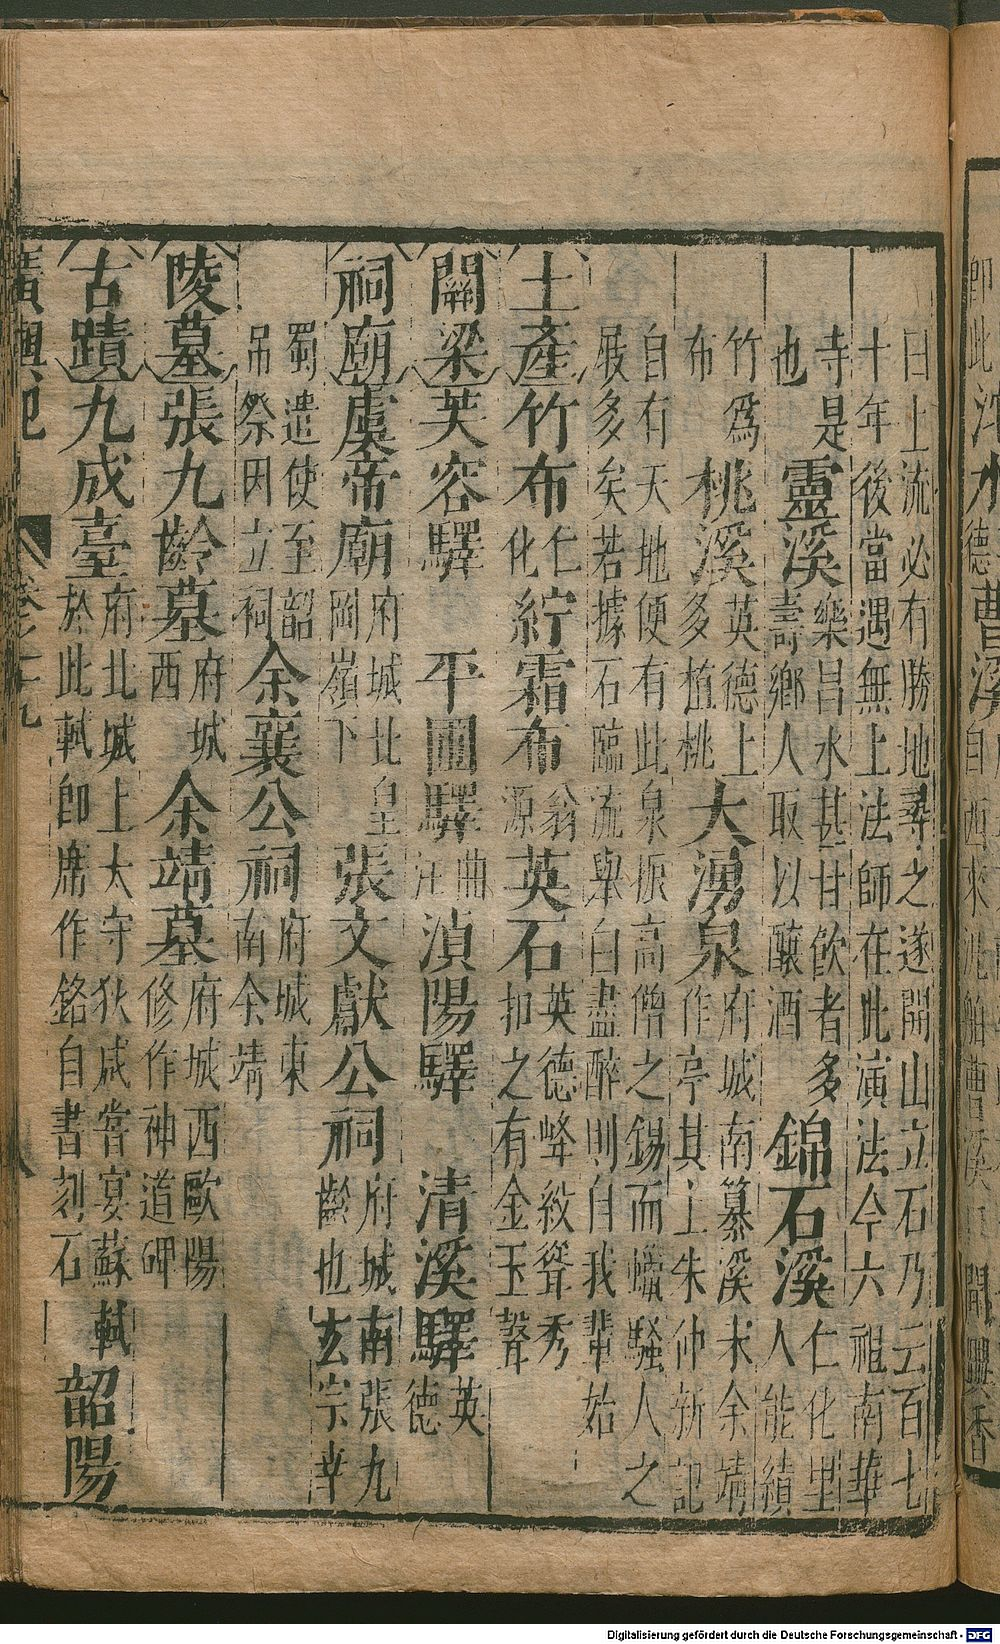 曰上流必有勝地尋之遂開山立石乃云百七
十年後當遇無上法師在此演法今六祖南華
寺是也竹爲布靈溪樂昌水甚甘飲者多壽鄉人取以釀酒錦石溪仁化里人能績
竹爲布桃溪英德上多植桃大湧泉府城南纂溪宋余靖作亭其上朱仲新記
自有天地便有此泉振高僧之錫而蠟騷人之
屐多矣若據石臨流舉白盡醉則自我輩始
土產竹布仁化紵霜布翁源英石英德峰紋聳秀扣之有金玉聲
關梁芙容驛 平圃驛曲江湞陽驛 清溪驛英德
祠廟虞帝廟府城北皇岡嶺下張文獻公祠府城南張九齡也玄宗幸
蜀遣使至韶弔祭因立祠余襄公祠府城東南余靖
陵墓張九齡墓府城西余靖墓府城西歐陽修作神道碑
古蹟九成臺府北城上太守狄咸嘗宴蘇軾於此軾卽席作銘自書刻石韶陽
廣輿記 卷之十九 八
Digitalisierung gefördert durch die Deutsche Forschungsgemeinschaft - DFG